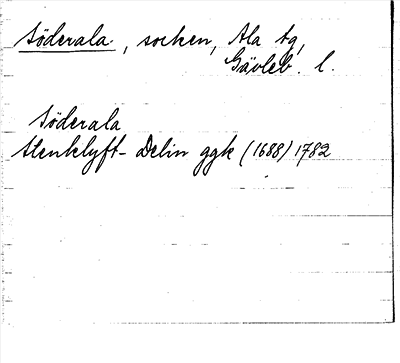 Söderala, socken, Ala tg,
Gävleb. l.
Söderala
Stenklyft- Delin ggk (1688) 1782